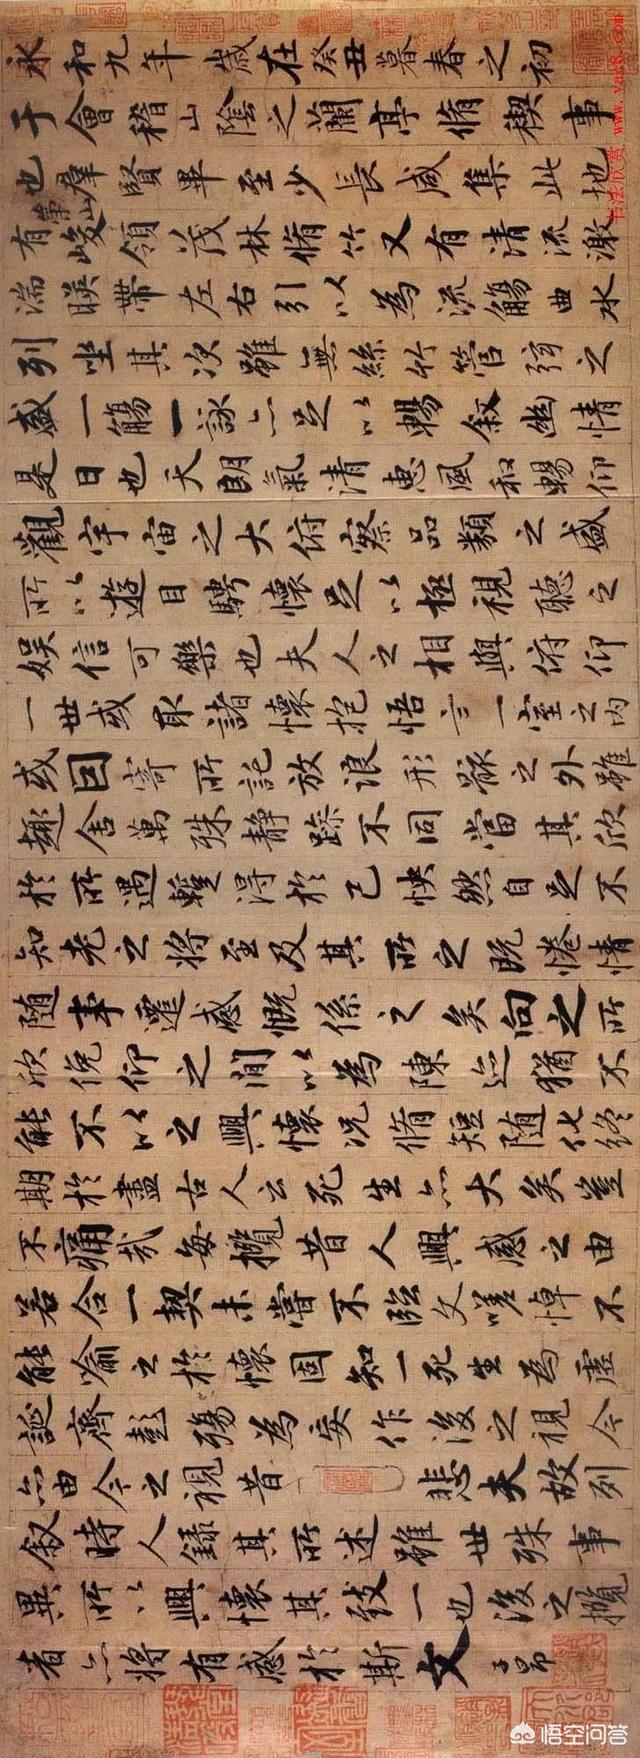 永和九年歲在癸丑暮春之初
于會稽山陰之蘭亭脩禊事
也羣賢畢至少長咸集此地
有崇山峻領茂林脩竹又有清流激
湍暎帶左右引以為流觴曲水
列坐其次雖無絲竹管弦之
盛一觴一詠亦足以暢敘幽情
是日也天朗氣清惠風和暢仰
觀宇宙之大俯察品類之盛
所以遊目騁懷足以極視聽之
娛信可樂也夫人之相與俯仰
一世或取諸懷抱悟言一室之內
或因寄所託放浪形骸之外雖
趣舍萬殊靜躁不同當其欣
於所遇暫得於己怏然自足不
知老之將至及其所之既惓情
隨事遷感慨係之矣向之所
欣俛仰之間以為陳迹猶不
能不以之興懷況脩短隨化終
期於盡古人云死生亦大矣豈
不痛哉每攬昔人興感之由
若合一契未嘗不臨文嗟悼不
能喻之於懷固知一死生為虛
誕齊彭殤為妄作後之視今
亦由今之視昔悲夫故列
敘時人錄其所述雖世殊事
異所以興懷其致一也後之攬
者亦將有感於斯文 子昂
书法欣赏 www.yac8.com
悟空问答